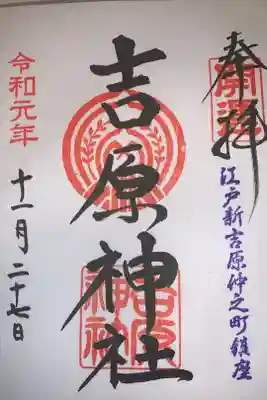 奉拝
開運
江戸新吉原仲之町鎮座
吉原神社
吉原神社
令和元年
十一月二十七日